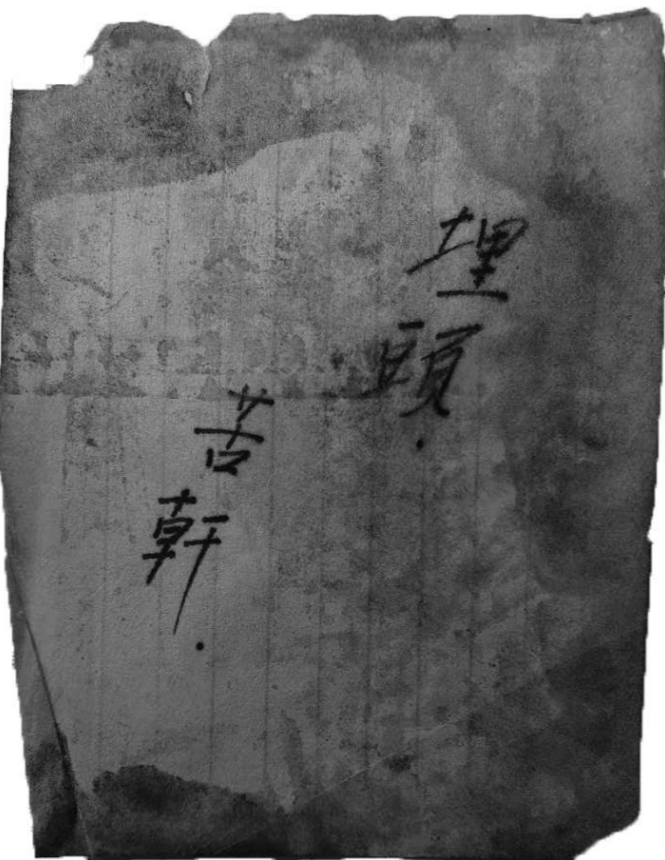 埋頭.
苦幹.